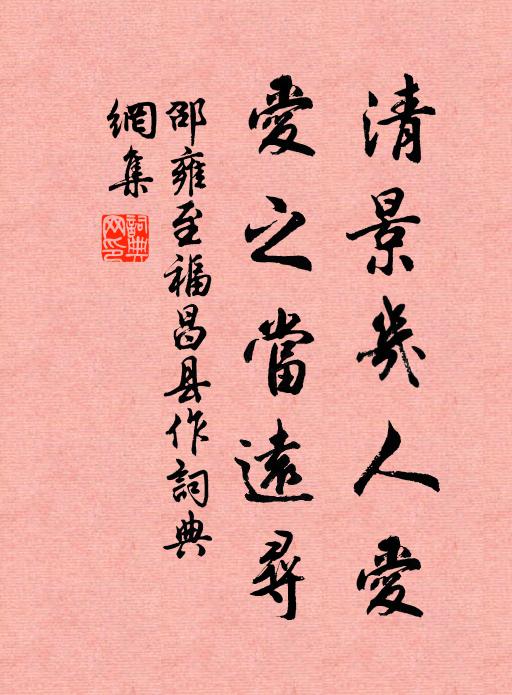 清景幾人愛
愛之當遠尋
邵雍至福昌县作詞典
網集
詞典網印